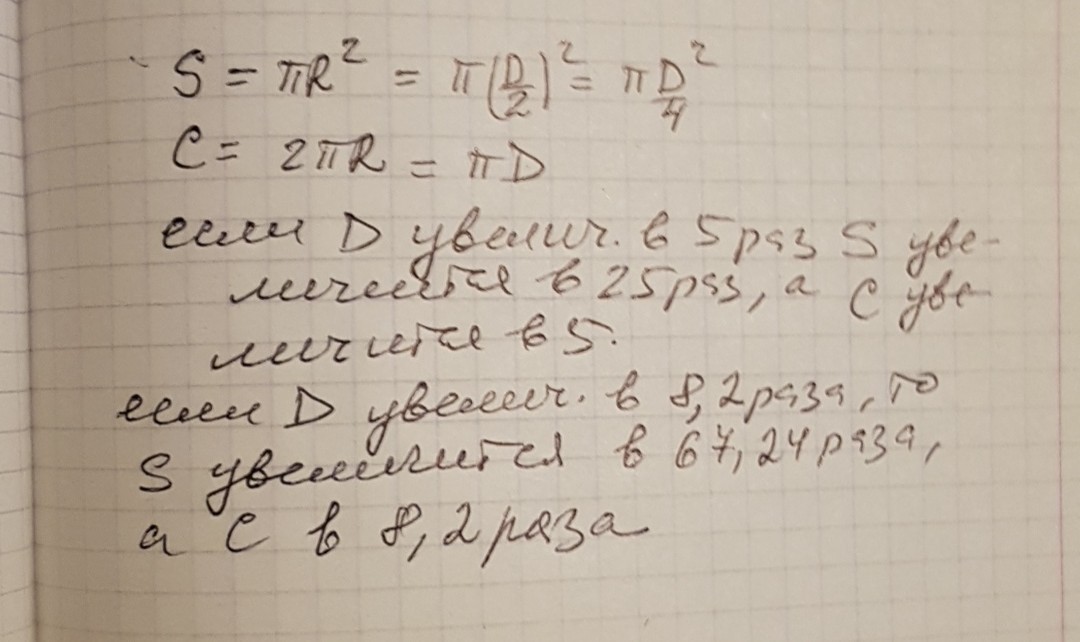 S = πR² = π(D/2)² = πD²/4
C = 2πR = πD
если D увелич. в 5 раз S уве-
личится в 25 раз, а C уве-
личится в 5.
если D увелич. в 8,2 раза, то
S увеличится в 67,24 раза,
а C в 8,2 раза